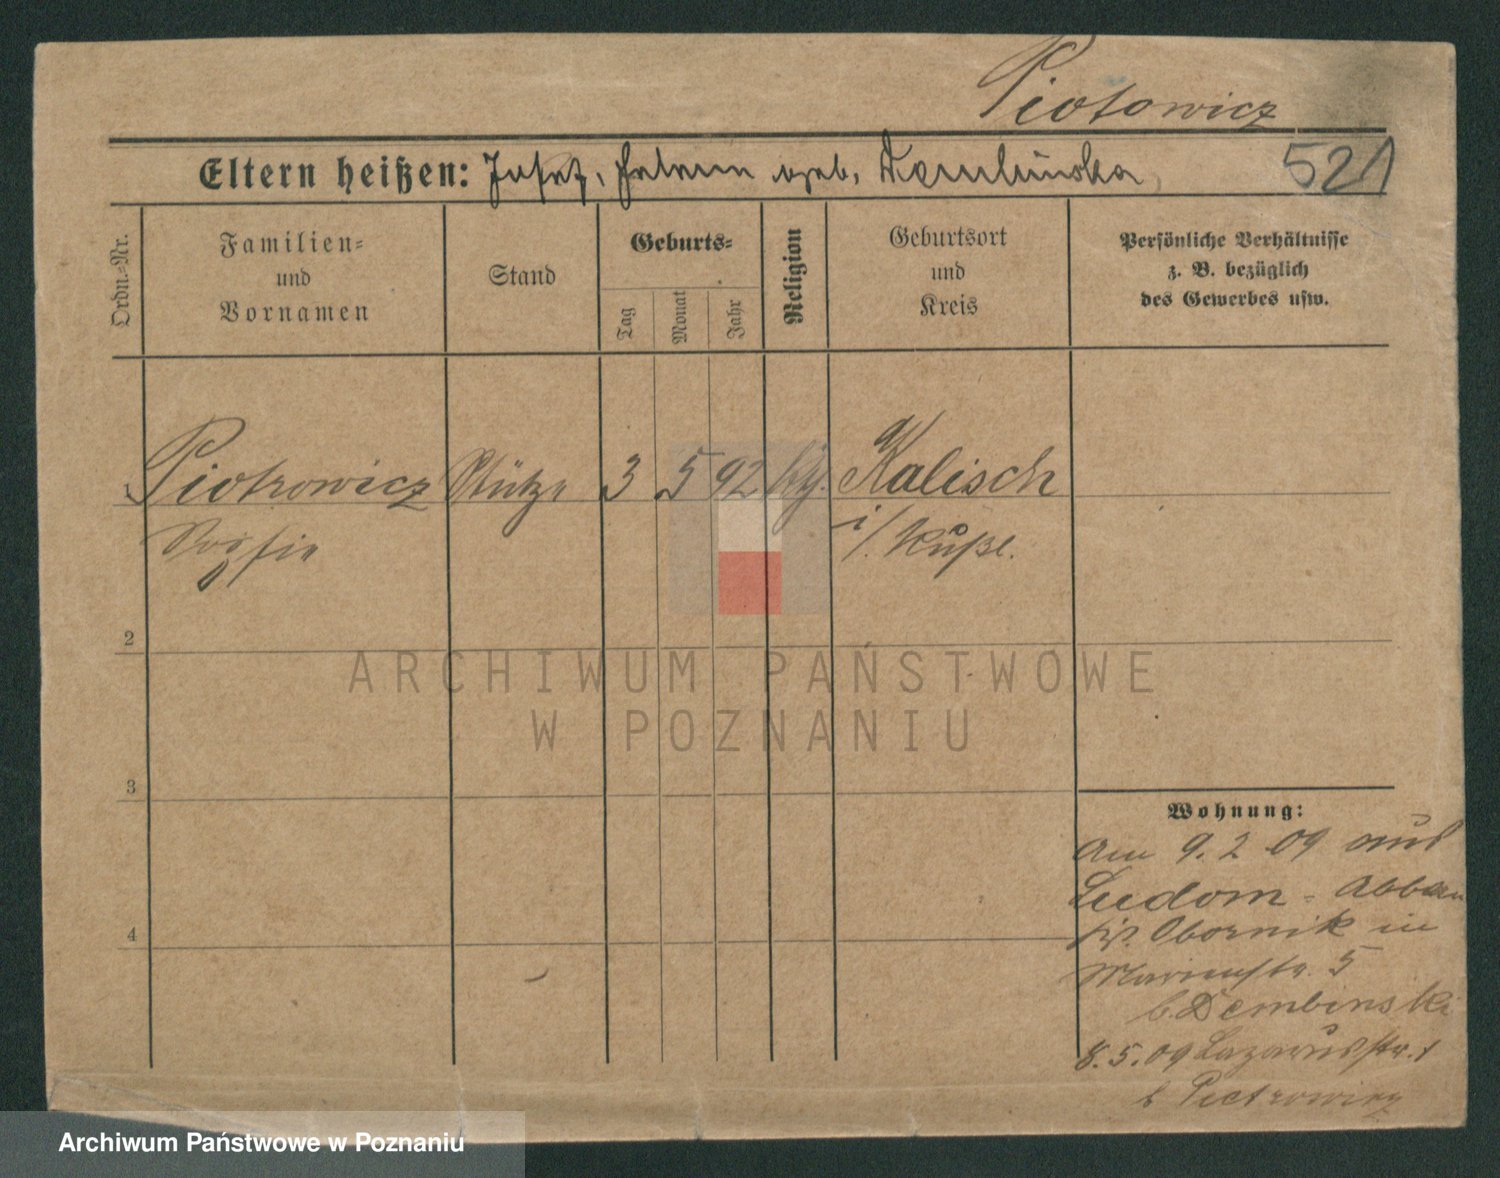 Piotowicz
Eltern heißen: Josef, Helene geb. Dembinska
521
Ordn.-Nr.
Familien-
und
Vornamen
Stand
Geburts-
Tag
Monat
Jahr
Religion
Geburtsort
und
Kreis
Persönliche Verhältnisse
z. B. bezüglich
des Gewerbes usw.
1 Piotrowicz Stütze 3 5 92 kg. Kalisch
Sofie i/. Rußl.
2
ARCHIWUM PAŃSTWOWE
W POZNANIU
3
Wohnung:
Am 9. 2 09 aus
Ludom - Abbau
4
Kr. Obornik in
Marienstr. 5
b. Dembinski
8. 5. 09 Lazarusstr. 1
b Piotrowicz
Archiwum Państwowe w Poznaniu